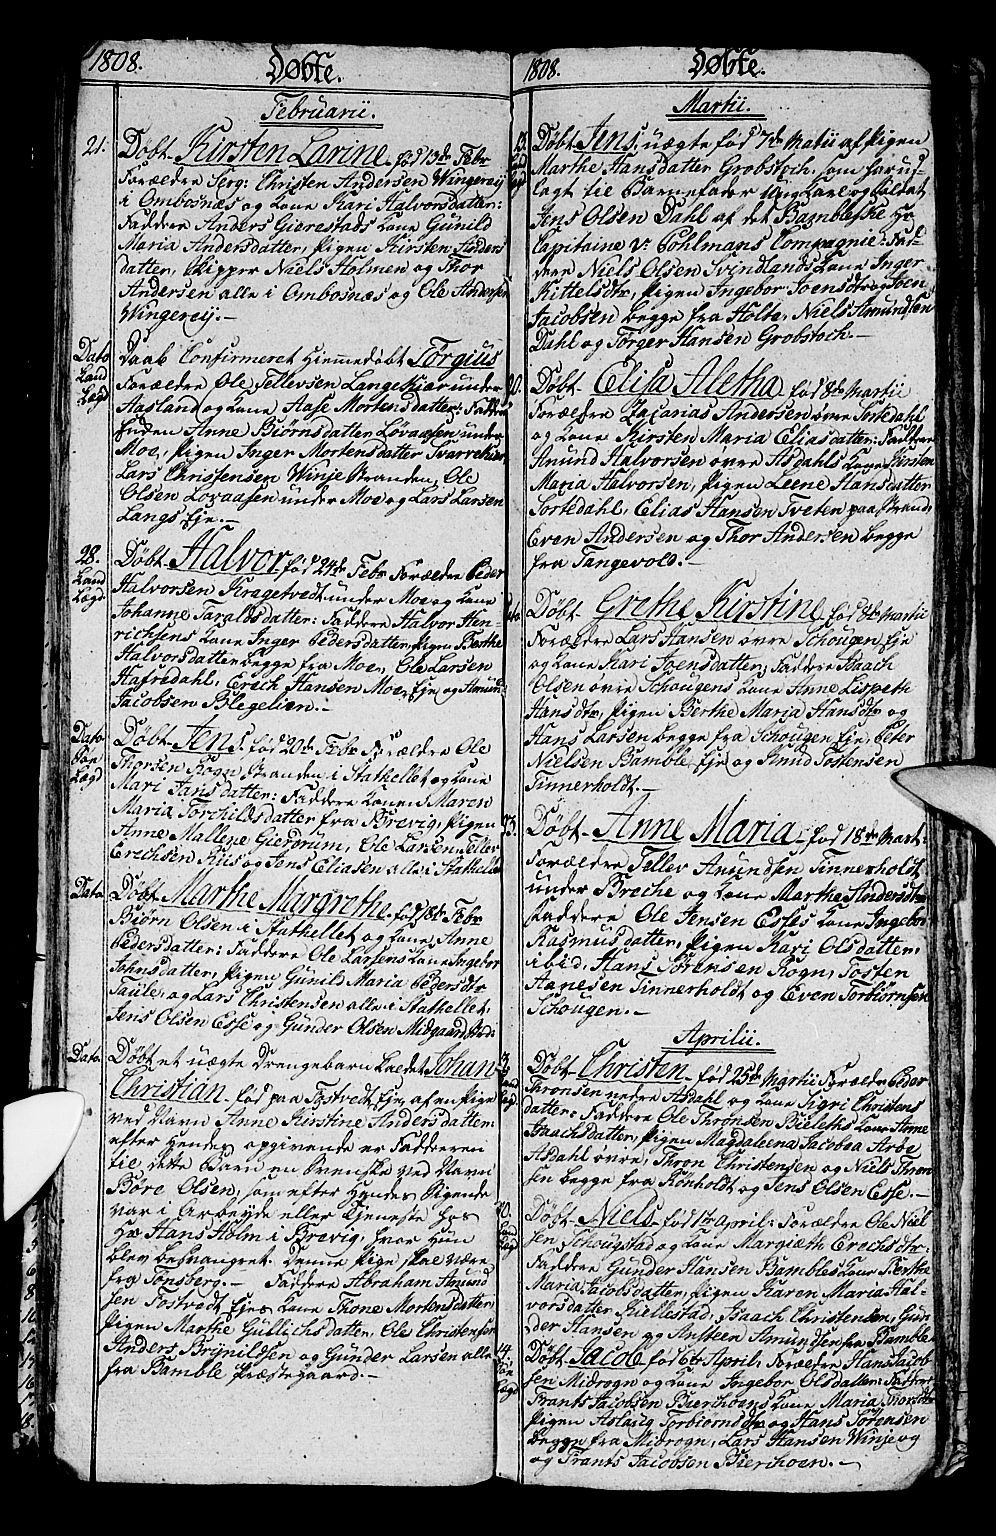 1808.
Døbte.
Februarii.
21. Døbt Kirsten Larine, fød 13de Febr
Forældre Serg: Christen Andersen Wingereij
i Ombosnæs og Kone Kari Halvorsdatter:
Faddere Anders Gierestads Kone Gunild
Maria Andersdatter, Pigen Kirsten Anders
datter, Skipper Niels Holmen og Thor
Andersen alle i Ombosnæs og Ole Andersen
Wingereij.-
Dato Daab Confirmeret Hiemmedøbt Torgius
Land Forældre Ole Tellevsen Langekiær under
Lægd Aasland og Kone Aase Mortensdatter: Fadde
Enden Anne Biørnsdatter Lovaasen under
Moe, Pigen Inger Mortensdatter Svartekier,
Lars Christensen Winje Stranden, Ole
Olsen Lovaasen under Moe og Lars Larsen
Langs Eje.-
28. Døbt Halvor fød 24de Febr Forældre Peder
Land Halvorsen Kragetvedt under Moe og Kone
Lægd Johanne Taraldsdatter: Faddere Halvor Hen-
richsens Kone Inger Pedersdatter, Pigen Berthe
Halvorsdatter begge fra Moe, Ole Larsen
Hafredahl, Erich Hansen Moe, Eje og Amund
Jacobsen Blegelien.-
Dato Døbt Jens, fød 20de Febr Forældre Ole
Søe Thorsen Rogn, Stranden i Stathellet og Kone
Lægd Mari Jansdatter: Faddere Konen Maren
Maria Torchildsdatter fra Brevig, Pigen
Anne Mallene Gierprum, Ole Larsen, Peder
Erechsen Riis og Jens Eliasen alle i Stathellet
Dato Døbt Marthe Margrethe fød 18de Febr
Biørn Olsen i Stathellet og Kone Anne
Pedersdatter: Faddere Ole Larsens Kone Ingebor
Johnsdatter, Pigen Gunild Maria Pedersdtr
Taule, og Lars Christensen alle i Stathellet,
Jens Olsen Esse og Gunder Olsen Midgaard,
Dato. Døbt et uægte Drengebarn kaldet Johan
Christian fød paa Tostvedt Eje, af en Pige
ved Navn Anne Kirstine Andersdatter
efter hendes opgivende er Fadderen
til dette Barn en Svenske ved Navn
Børe Olsen, som efter hendes Sigende
var i Arbeyde eller Tjeneste hos
Hr Hans Holm i Brevig, hvor hun
blev besvangret. Denne Pige skal være
fra Tønsberg.- Faddere Abraham Amund
sen Tostvedt Ejes Kone Thone Mortensdatter,
Pigen Marthe Gullichsdatter, Ole Christensen
Anders Brynildsen og Gunder Larsen alle
fra Bamble Præstegaard.-
1808.
Døbte.
Martii.
13. Døbt Jens, uægte fød 7de Martii af Pigen
Land Marthe Hansdatter Grobstoch, som har ud-
Lægd lagt til Barnefader Ung Karl og Soldat
Jens Olsen Dahl af det Bambleske Hr
Capitaine v: Pohlmans Compagnie: Fad-
dere Niels Olsen Svindlands Kone Inger
Kittelsdtr, Pigen Ingebor Joensdtr og Joen
Jacobsen begge fra Holte, Niels Amundsen
Dahl og Torger Hansen Grobstoch.-
20. Døbt Elisa Aletha fød 8de Martii
Forældre Zacarias Andersen øvre Tortedahl
og Kone Kirsten Maria Eliasdatter: Faddere
Amund Halvorsen øvre Asdahls Kone Kirsten
Maria Halvorsen, Pigen Leene Hansdatter
Tortedahl, Elias Hansen Tveten paa Strand,
Even Andersen og Thor Andersen begge
fra Tangevold.-
Dato Døbt Grethe Kirstine fød 8de Martii
Forældre Lars Hansen øvre Schougen Eje
og Kone Kari Joensdatter, Faddere Isaach
Olsen øvre Schougens Kone Anne Lisbeth
Hansdtr, Pigen Berthe Maria Hansdtr og
Hans Larsen begge fra Schougen Eje, Peter
Nielsen Bamble Eje og Amund Tostensen
Tinnerholdt.-
23. Døbt Anne Maria, fød 18de Mart:
Forældre Tellev Amundsen Tinnerholdt
under Breche og Kone Marthe Andersdtr
Faddere Ole Jensen Esses Kone Ingebor
Rasmusdatter, Pigen Kari Olsdatter,
ibid, Hans Sørensen Rogn, Tosten
Hanesen Tinnerholdt og Even Torbiørnsen
Schougen.-
Aprilii.
3. Døbt Christen, fød 25de Martii Forældre Peder
Land Thronsen nedre Asdahl og Kone Sigri Christens
Lægd datter: Faddere Ole Thronsen Bieleths Kone Anne
Isaachsdatter, Pigen Magdalena Jacobea Aroe
Asdahl øvre, Thron Christensen og Niels Thron
sen begge fra Rønholdt og Jens Olsen Esse.-
10. Døbt Niels fød 1de April: Forældre Ole Niel
Land sen Schougstad og Kone Margiæth Erechsdtr:
Lægd Faddere Gunder Hansen Bambles Kone Bertha
Maria Jacobsdatter, Pigen Karen Maria Hal-
vorsdatter Kiellestad, Isaach Christensen, Gun
der Hansen og Ansteen Amundsen fra Bamble
14. Døbt Jacob fød 6te April, Forældre Hans Jacob
Søe sen Midrogn og Kone Ingebor Olsdatter: Faddere
Lægd Frants Jacobsen Bierchoens Kone Maria Thorsdtr
Pigen Aslaug Torbiornsdtr og Hans Sørensen
begge fra Midrogn, Lars Hansen Winje og
og Frants Jacobsen Bierchoen.-